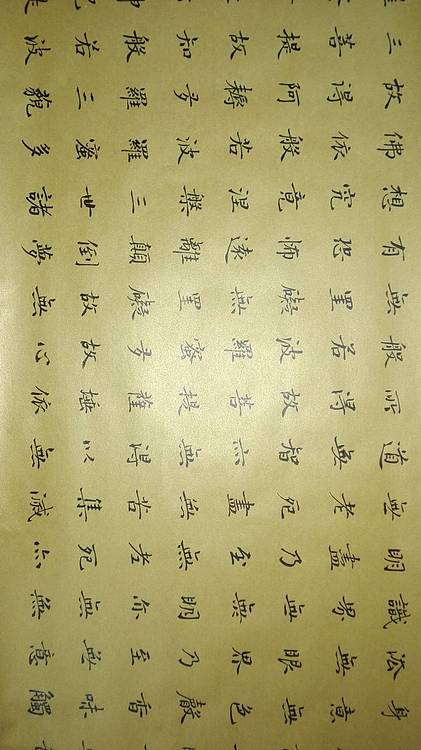 身意無色聲香味觸
法無眼界乃至無意
識界無無明亦無無
明盡乃至無老死亦
無老死盡無苦集滅
道無智亦無得以無
所得故菩提薩埵依
般若波羅蜜多故心
無罣礙無罣礙故無
有恐怖遠離顛倒夢
想究竟涅槃三世諸
佛依般若波羅蜜多
故得阿耨多羅三藐
三菩提故知般若波